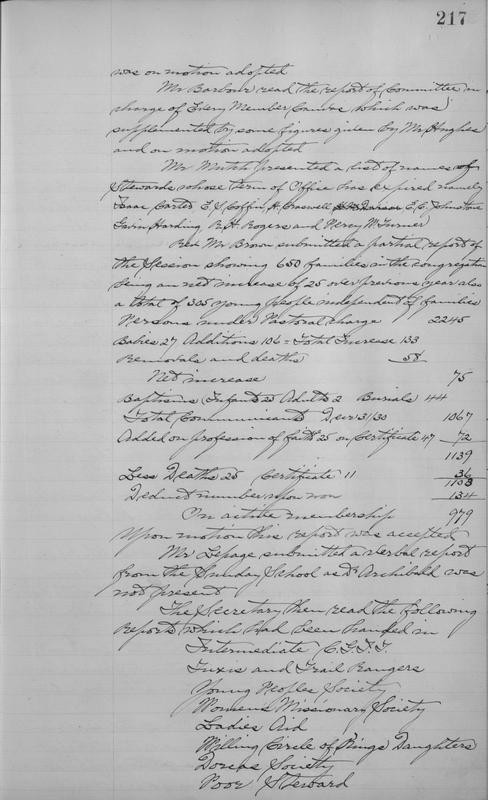 217
was on motion adopted
Mr Barbour read the report of Committee in
charge of Every Member Canvas which was
supplemented by some figures given by Mr Hughes
and on motion adopted
Mr Mutch presented a list of names of
Stewards whose term of Office has expired namely
Isaac Carter E J Coffin H. Craswell E. C. Johnstone
Gavin Harding R. H. Rogers and Percy W. Turner
Rev Mr Brown submitted a partial report of
the Session showing 650 families in the congregation
being an net increase of 25 over previous year also
a total of 305 young people independent of families
Persons under Pastoral charge 2245
Babies 27 Additions 106 = Total Increase 133
Removals and deaths 58
Net increase 75
Baptisms Infants 23 Adults 2 Burials 44
Total Communicants Dec 31/30 1067
Added on profession of faith 25 on Certificate 47 72
1139
Less Deaths 25 Certificate 11 36
Deduct number upon non 134
On active membership 979
Upon motion this report was accepted
Mr Lepage submitted a verbal report
from the Sunday School as Dr Archibald was
not present
The Secretary then read the following
Reports which had been handed in
Intermediate C.G.I.T.
Tuxis and Trail Rangers
Young Peoples Society
Womens Missionary Society
Ladies Aid
Willing Circle of Kings Daughters
Dorcas Society
Poor Steward